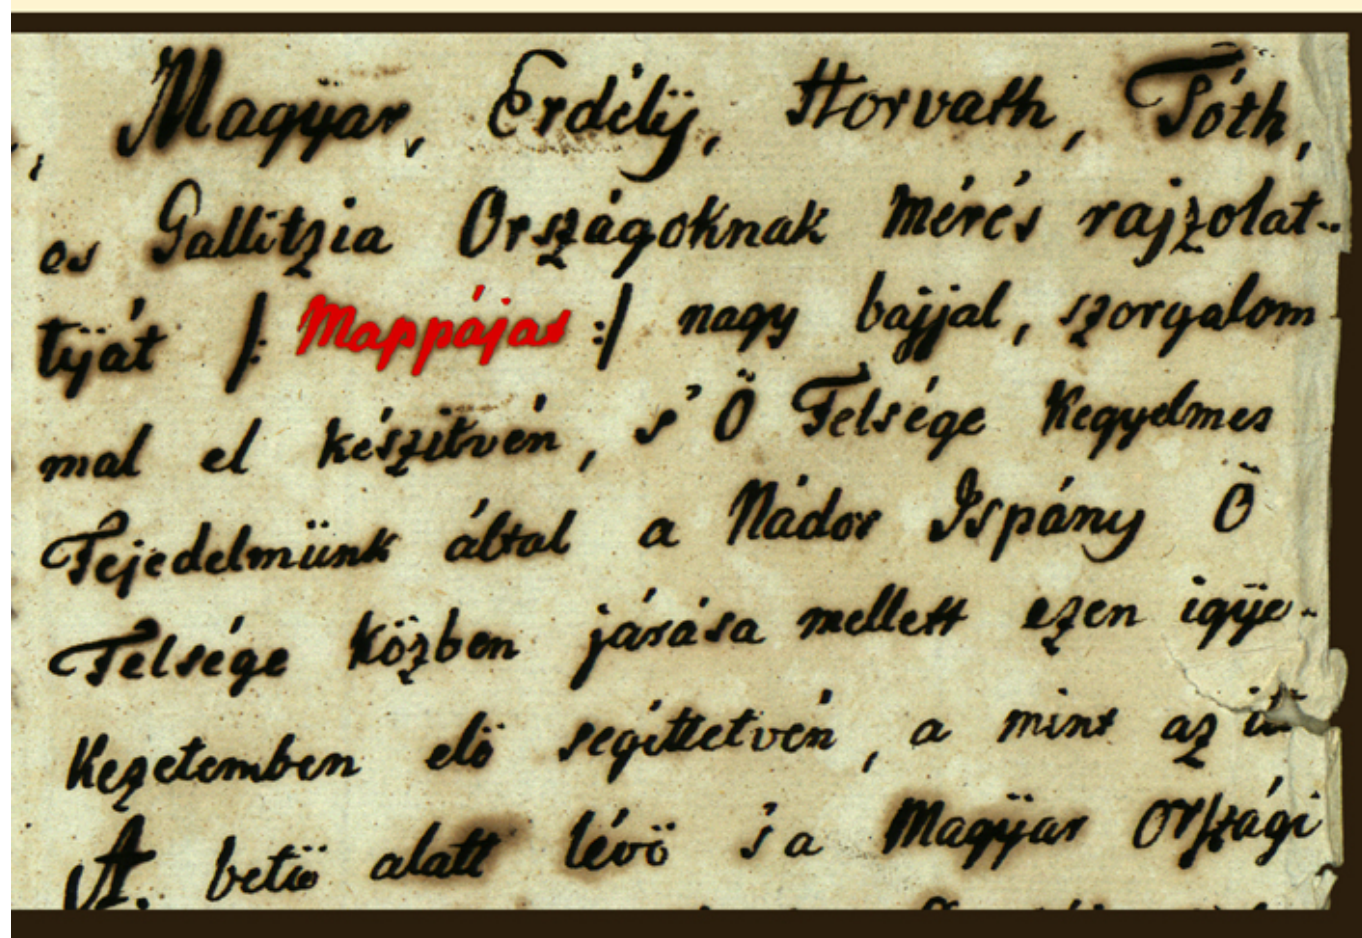 Magÿar, Erdélÿ, Horvath, Tóth,
es Gallitzia Országoknak mérés rajzolat-
tÿát |: Mappájas :| nagy bajjal, szorgalom
mal el készitvén, s' Ö Felsége Kegyelmes
Fejedelmünk által a Nádor Ispány Ö
Felsége közben járása mellett ezen igÿe-
kezetemben elö segíttetvén, a mint az
A. betü alatt lévö s a Magÿar Országi